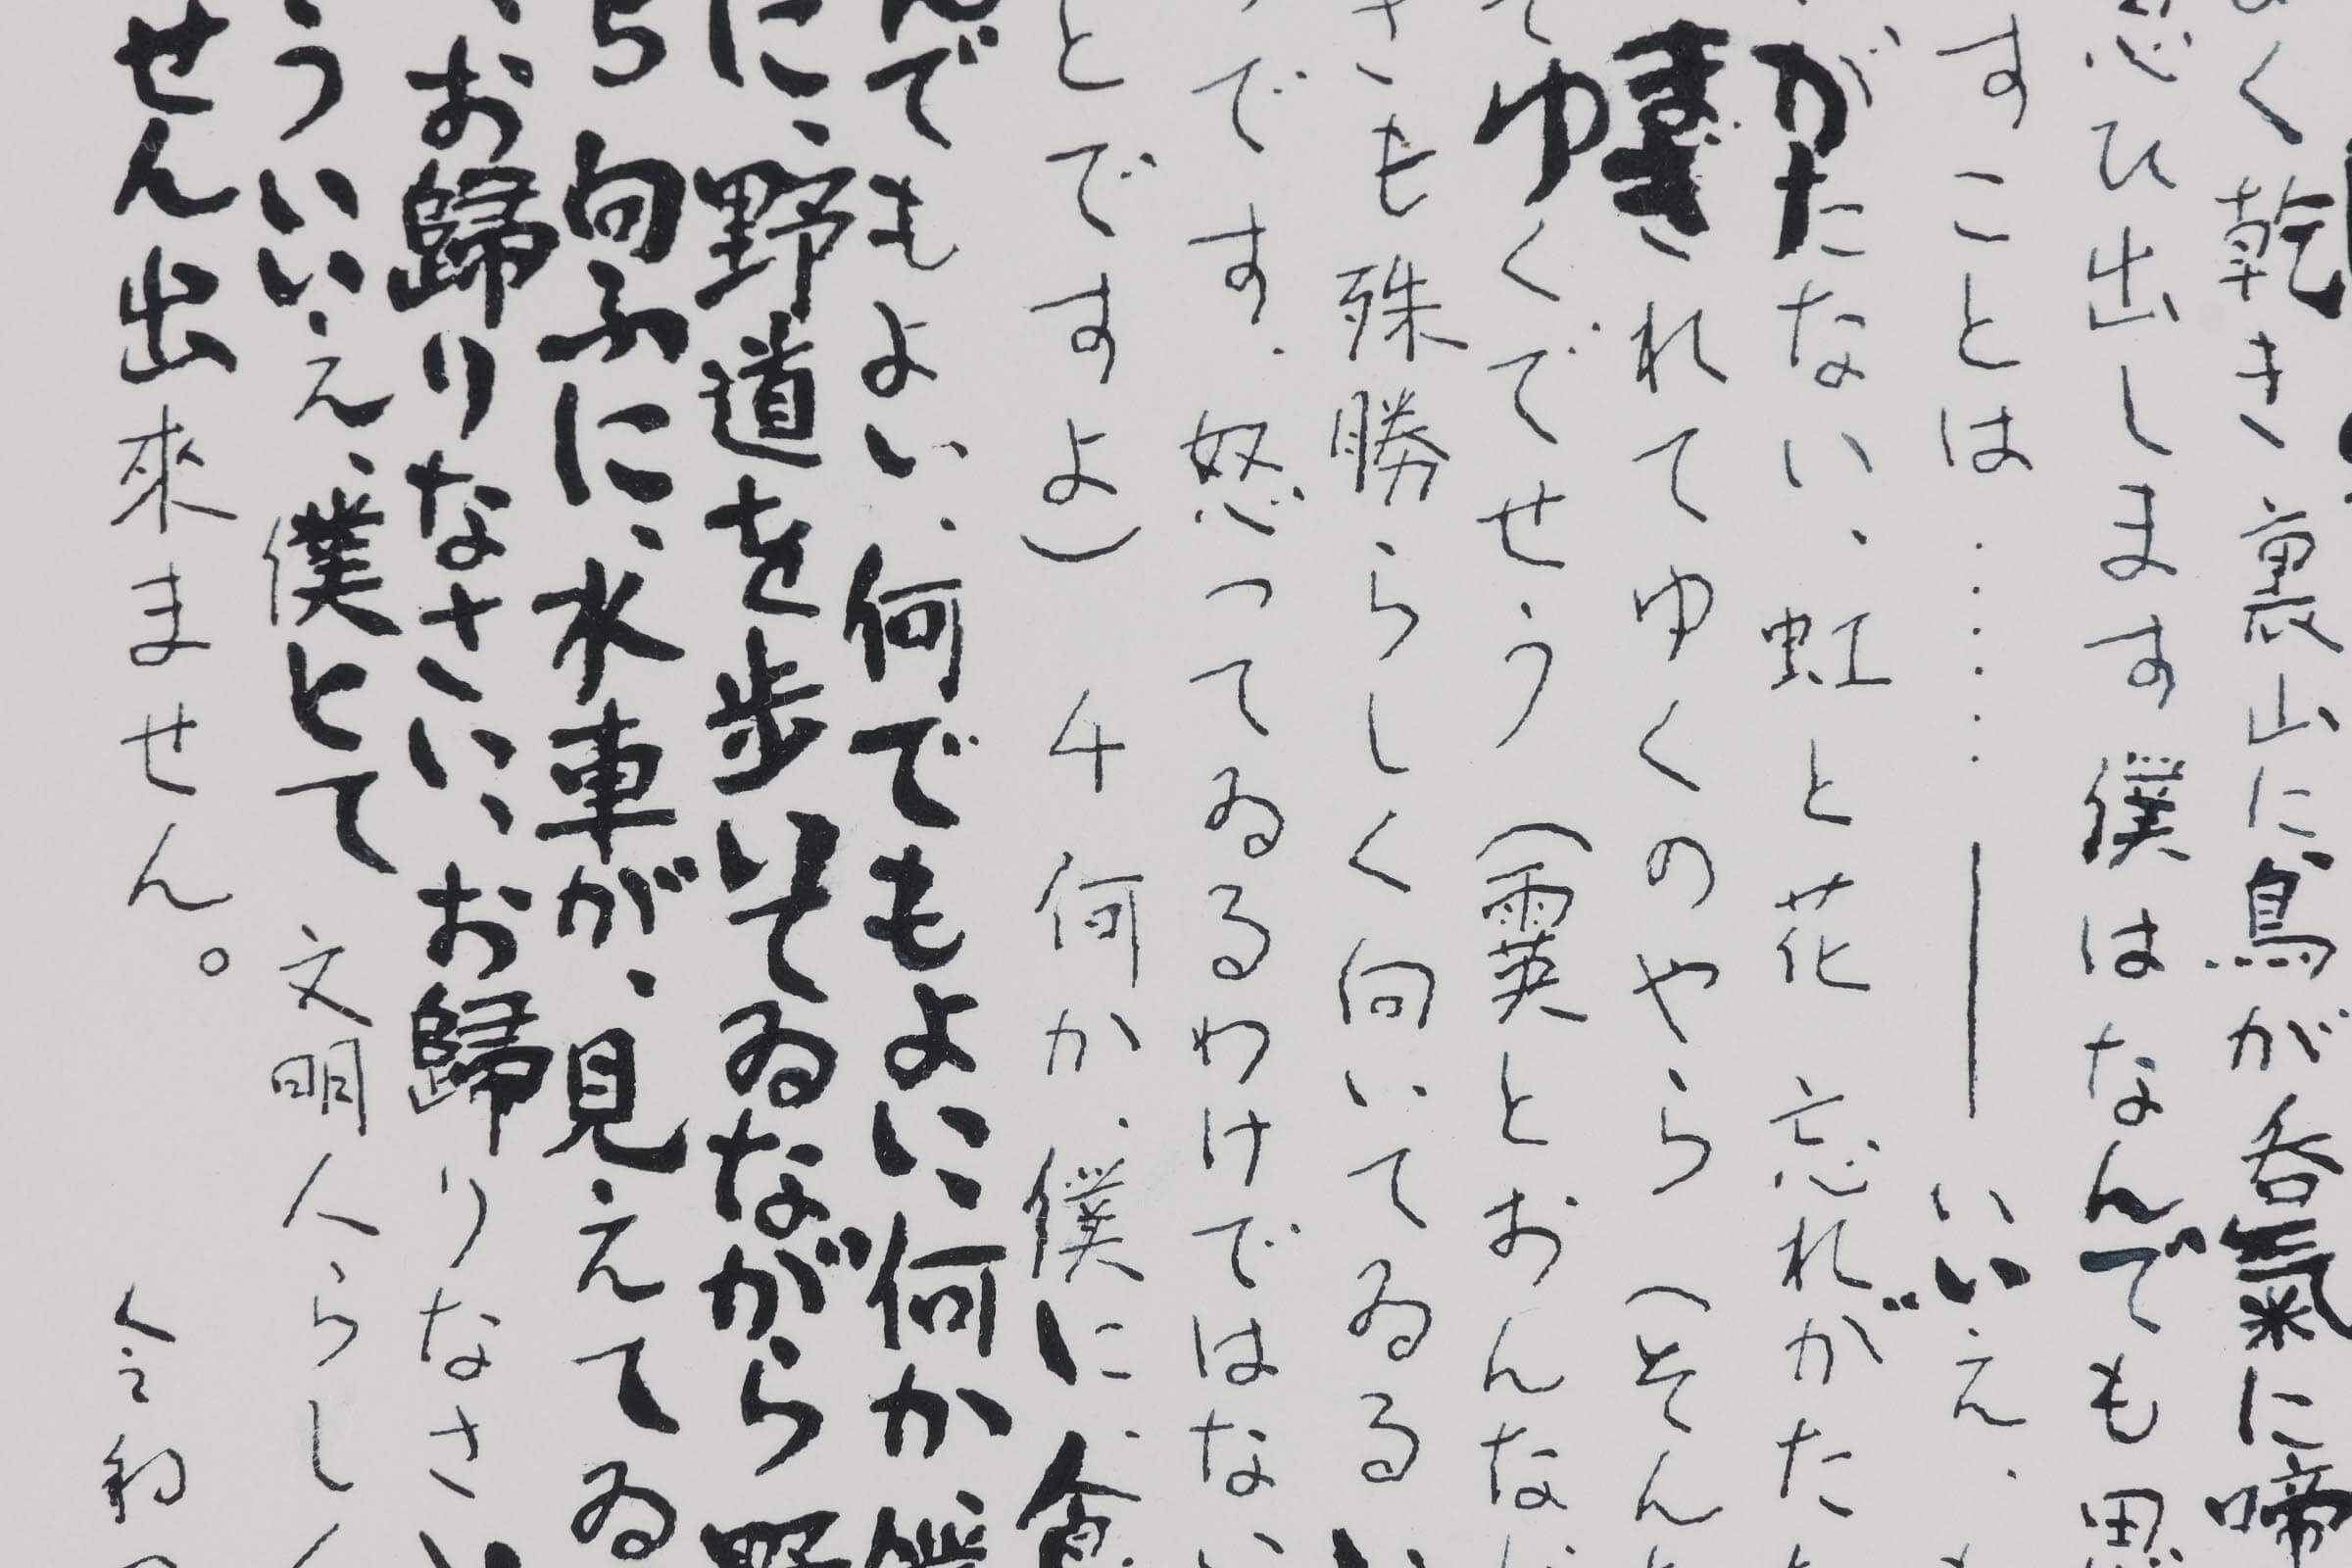 く乾き 裏山に鳥が呑氣に啼
思ひ出します 僕はなんでも思
すことは……――いいえ、
がたない、虹と花 忘れがた
まぎれてゆくのやら (そん
てゆくでせう (霙とおんな
さも殊勝らしく向いてゐる
うです。怒ってゐるわけではない
とですよ) 4 何か、僕に、食
んでもよい、何でもよいに何か
に、野道を歩いてゐながら野
ら匂ふに、水車が、見えてゐ
、お歸りなさい、お歸りなさい
ういいえ、僕とて 文明人らしく
せん出來ません。 令和